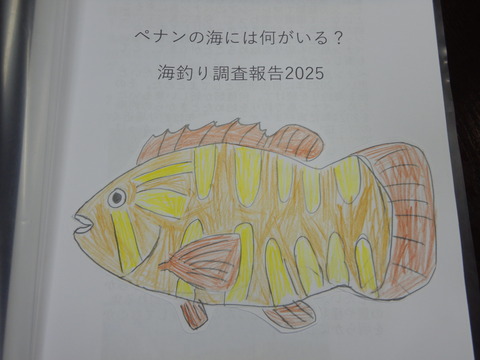 ペナンの海には何がいる？
海釣り調査報告2025